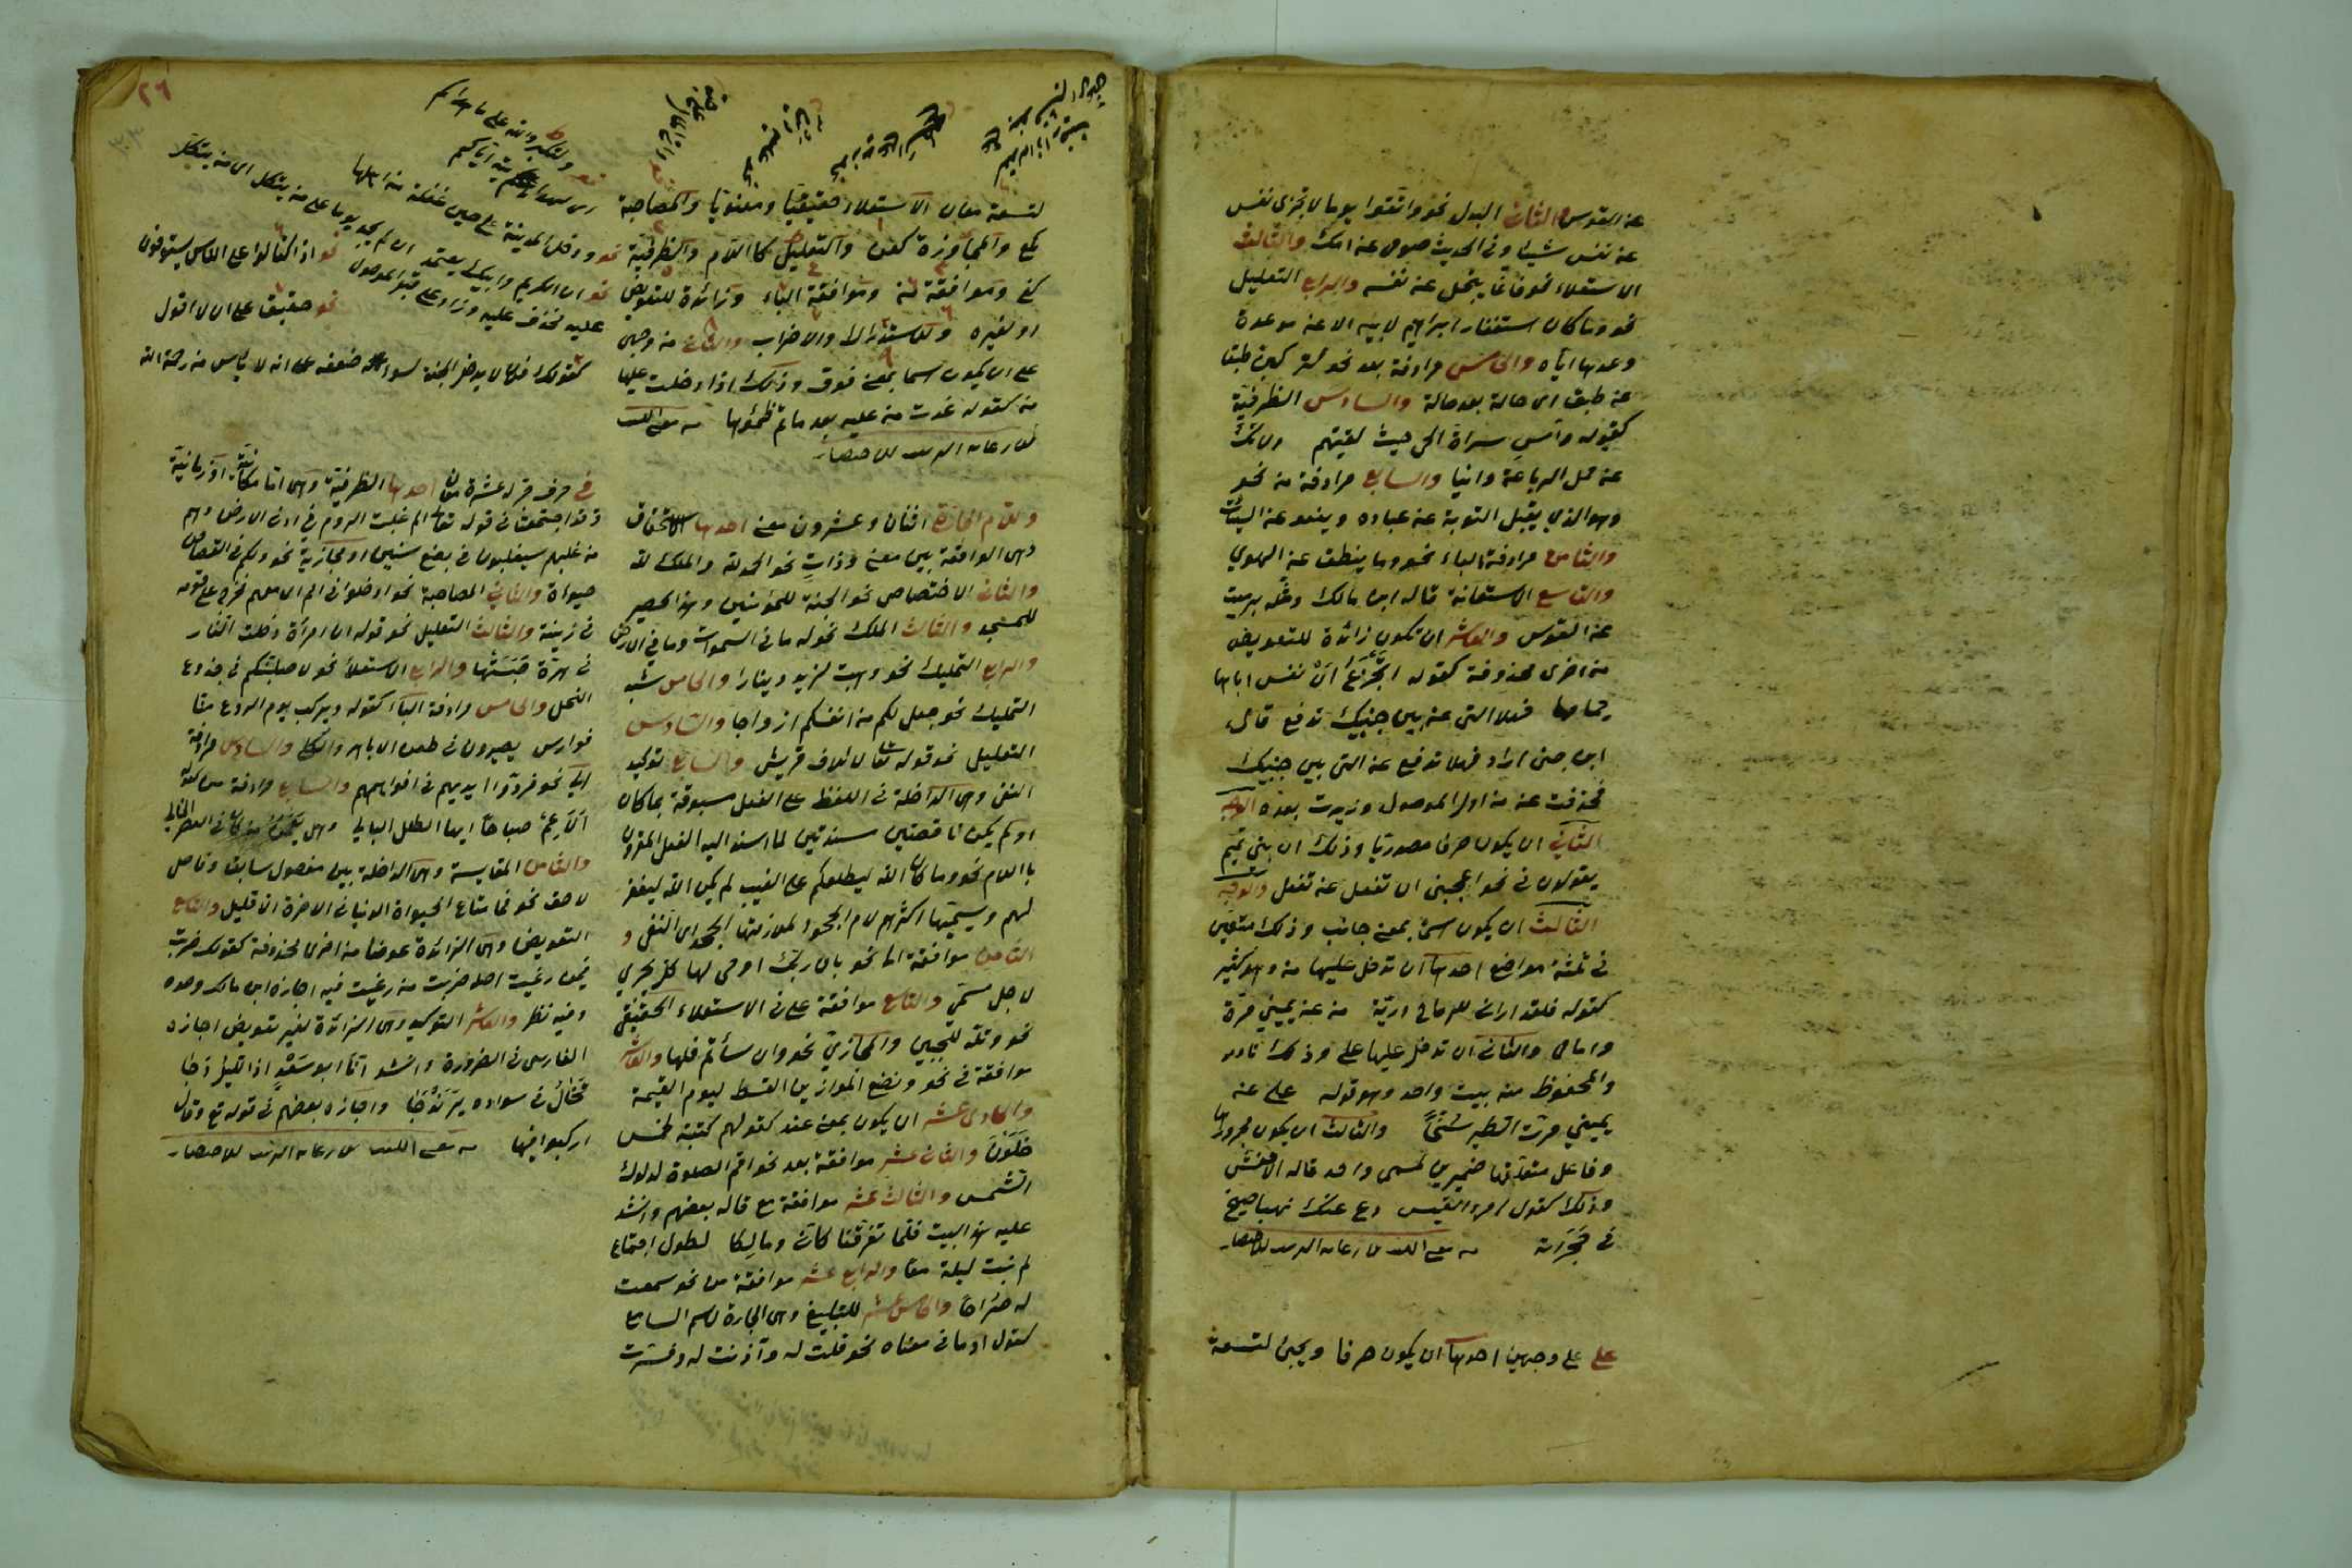 عن القوس والثاني البدل نحو واتقوا يوما لا تجزى نفس
عن نفس شيئا وفي الحديث صومي عن امك والثالث
الاستعلاء نحو فانما يبخل عن نفسه والرابع التعليل
نحو وما كان استغفار ابراهيم لابيه الا عن موعدة
وعدها اياه والخامس مرادفة بعد نحو لتركبن طبقا
عن طبق اى حالة بعد حالة والسادس الظرفية
كقوله وآس سراة الحى حيث لقيتهم ولا تك
عن حمل الرباعة وانيا والسابع مرادفة من نحو
وهو الذي يقبل التوبة عن عباده ويعفو عن السيئات
والثامن مرادفة الباء نحو وما ينطق عن الهوي
والتاسع الاستعانة قاله ابن مالك ومثله برميت
عن القوس والعاشر ان تكون زائدة للتعويض
من اخرى محذوفة كقوله اتجزع ان نفس اتاها
حمامها فهلا التى عن بين جنبيك تدفع قال
ابن جنى اراد فهلا تدفع عن التى بين جنبيك
فحذفت عن من اول الموصول وزيدت بعده الوجه
الثاني ان يكون حرفا مصدريا وذلك ان بنى تميم
يقولون في نحو اعجبنى ان تفعل عن تفعل والوجه
الثالث ان يكون اسما بمعنى جانب وذلك متعين
في ثلثة مواضع احدها ان تدخل عليها من وهو كثير
كقوله فلقد ارانى للرماح درية من عن يميني مرة
وامامى والثانى ان تدخل عليها على وذلك نادر
والمحفوظ منه بيت واحد وهو قوله على عن
يميني مرت الطير سنحا والثالث ان يكون مجرورها
وفاعل متعلقها ضميرين لمسمى واحد قاله الاخفش
وذلك كقول امرء القيس دع عنك نهبا صيح
في حجراته من مغنى اللبيب
على على وجهين احدها ان يكون حرفا ويجئ لتسعة
لتسعة معان الاستعلاء حقيقيا ومعنويا والمصاحبة
كمع والمجاوزة كعن والتعليل كاللام والظرفية
كفى وموافقة من وموافقة الباء وزائدة للتعويض
او لغيره وللاستدراك والاضراب والثانى من وجهى
على ان يكون اسما بمعنى فوق وذلك اذا دخلت عليها
من كقوله غدت من عليه بعد ما تم ظمؤها من مغنى اللبيب
وللام الجارة اثنان وعشرون معنى احدها الاستحقاق
وهى الواقعة بين معنى وذات نحو الحمد لله والملك لله
والثانى الاختصاص نحو الجنة للمؤمنين وهذا الحصير
للمسجد والثالث الملك نحو له ما في السموات وما في الارض
والرابع التمليك نحو وهبت لزيد دينارا والخامس شبه
التمليك نحو جعل لكم من انفسكم ازواجا والسادس
التعليل نحو قوله تعا لايلاف قريش والسابع توكيد
النفى وهى الداخلة في اللفظ على الفعل مسبوقة بما كان
او لم يكن ناقصتين مسندتين لما اسند اليه الفعل المقرون
باللام نحو وما كان الله ليطلعكم على الغيب لم يكن الله ليغفر
لهم ويسميها اكثرهم لام الجحود لملازمتها للجحد اى النفى و
الثامن موافقة الى نحو بان ربك اوحى لها كل يجرى
لاجل مسمى والتاسع موافقة على في الاستعلاء الحقيقى
نحو وتله للجبين والمجازي نحو وان سأتم فلها والعاشر
موافقة في نحو ونضع الموازين القسط ليوم القيمة
والحادى عشر ان يكون بمعنى عند كقولهم كتبته لخمس
خلون والثانى عشر موافقة بعد نحو اقم الصلوة لدلوك
الشمس والثالث عشر موافقة مع قاله بعضهم وانشد
عليه هذا البيت فلما تفرقنا كانى ومالكا لطول اجتماع
لم نبت ليلة معا والرابع عشر موافقة من نحو سمعت
له صراخا والخامس عشر للتبليغ وهى الجارة لاسم السامع
لقول او ما في معناه نحو قلت له وآذنت له وفسرت
٢٦
ولتكبروا الله على ما هداكم
نحو ودخل المدينة على حين غفلة من اهلها
نحو ان الكريم وابيك يعتمل ان لم يجد يوما على من يتكل اى من يتكل
عليه فحذف عليه وزاد على قبل الموصول
نحو اذا اكتالوا على الناس يستوفون
نحو حقيق على ان لا اقول
كقولك فلان لا يدخل الجنة لسوء صنعه على انه لا يأس من رحمة الله
في حرف جر له عشرة معان احدها الظرفية وهى اما مكانية او زمانية
وقد اجتمعتا في قوله تعا الم غلبت الروم في ادنى الارض وهم
من غلبهم سيغلبون في بضع سنين او مجازية نحو ولكم في القصاص
حيواة والثاني المصاحبة نحو ادخلوا في امم اى معهم فخرج على قومه
في زينته والثالث التعليل نحو قوله ان امرأة دخلت النار
في هرة حبستها والرابع الاستعلاء نحو لاصلبنكم في جذوع
النخل والخامس مرادفة الباء كقوله ويركب يوم الروع منا
فوارس يصيرون في طعن الاباهر والكلى والسادس مرادفة
الى نحو فردوا ايديهم في افواههم والسابع مرادفة من كقوله
الا عم صباحا ايها الطلل البالي وهل يعمن من كان في العصر الخالي
والثامن المقايسة وهى الداخلة بين مفضول سابق وفاضل
لاحق نحو فما متاع الحيواة الدنيا في الاخرة الا قليل والتاسع
التعويض وهى الزائدة عوضا من اخرى محذوفة كقولك ضربت
فيمن رغبت اصله ضربت من رغبت فيه اجازه ابن مالك وحده
وفيه نظر والعاشر التوكيد وهى الزائدة لغير تعويض اجازه
الفارسى في الضرورة وانشد انا ابو سعد اذا الليل دجا
تخال في سواده يرندجا واجازه بعضهم في قوله تع وقال
اركبوا فيها من مغنى اللبيب